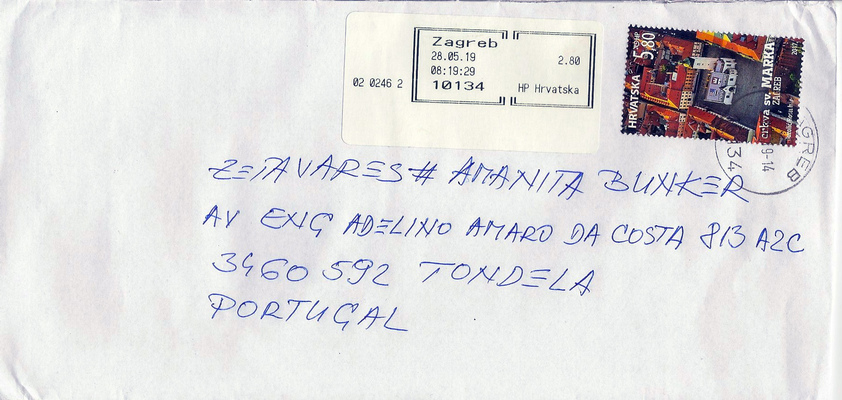 Zagreb
28.05.19 2.80
08:19:29
02 0246 2 10134 HP Hrvatska
HRVATSKA 5,80
crkva sv. MARKA
ZAGREB
2017
GREB
9-14
134
ZETAVARES # AMANITA BUNKER
AV ENG ADELINO AMARO DA COSTA 813 A2C
3460 592 TONDELA
PORTUGAL